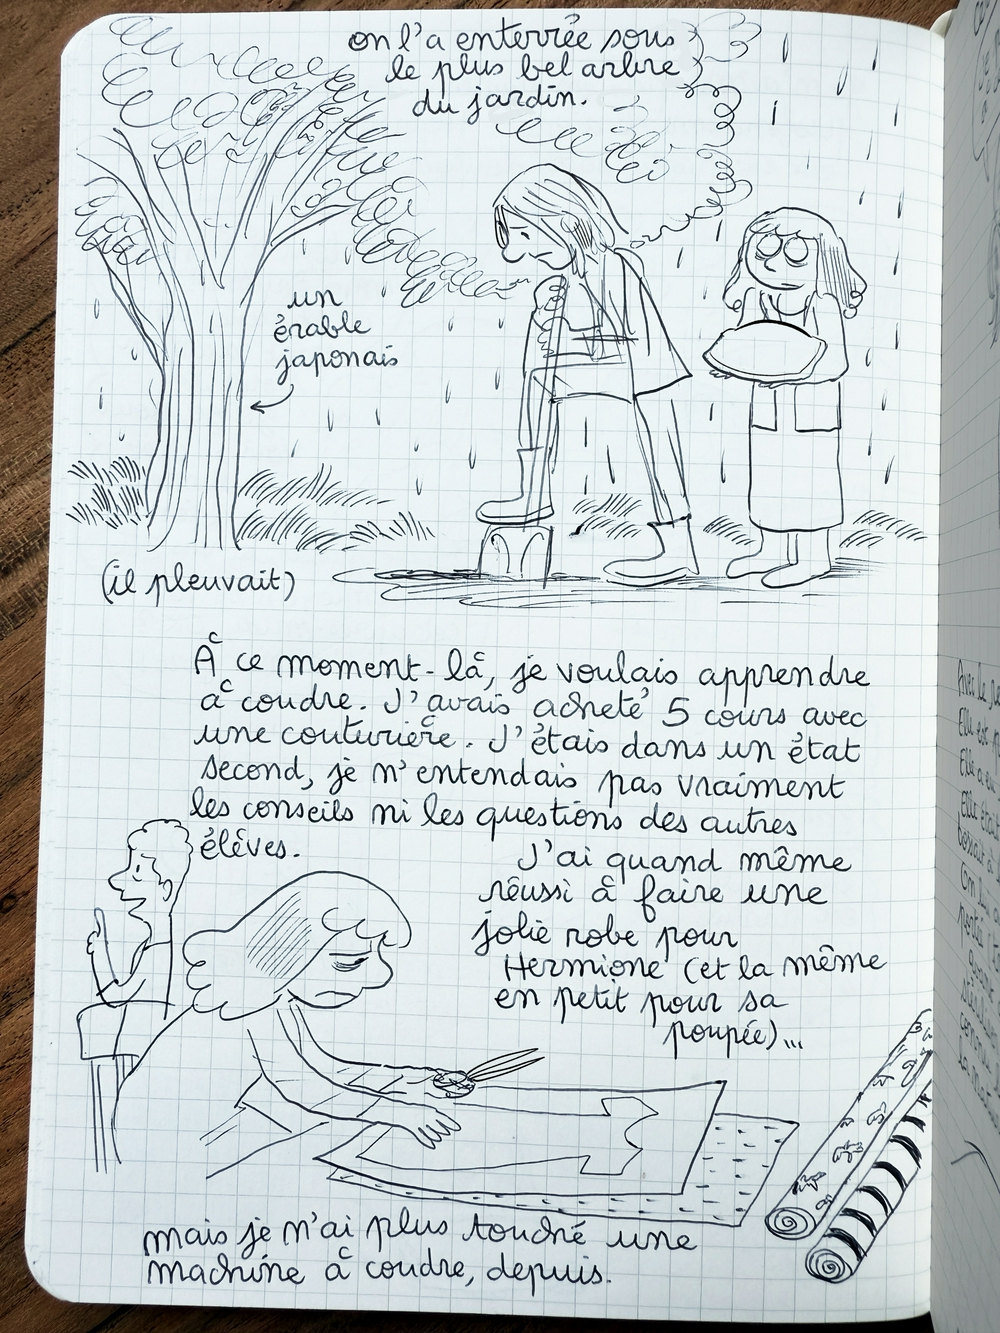 on l'a enterrée sous
le plus bel arbre
du jardin.
un
érable
japonais
(il pleuvait)
À ce moment-là, je voulais apprendre
à coudre. J'avais acheté 5 cours avec
une couturière. J'étais dans un état
second, je n'entendais pas vraiment
les conseils ni les questions des autres
élèves.
J'ai quand même
réussi à faire une
jolie robe pour
Hermione (et la même
en petit pour sa
poupée)...
mais je n'ai plus touché une
machine à coudre, depuis.
Avec le
Elle est
Elle a